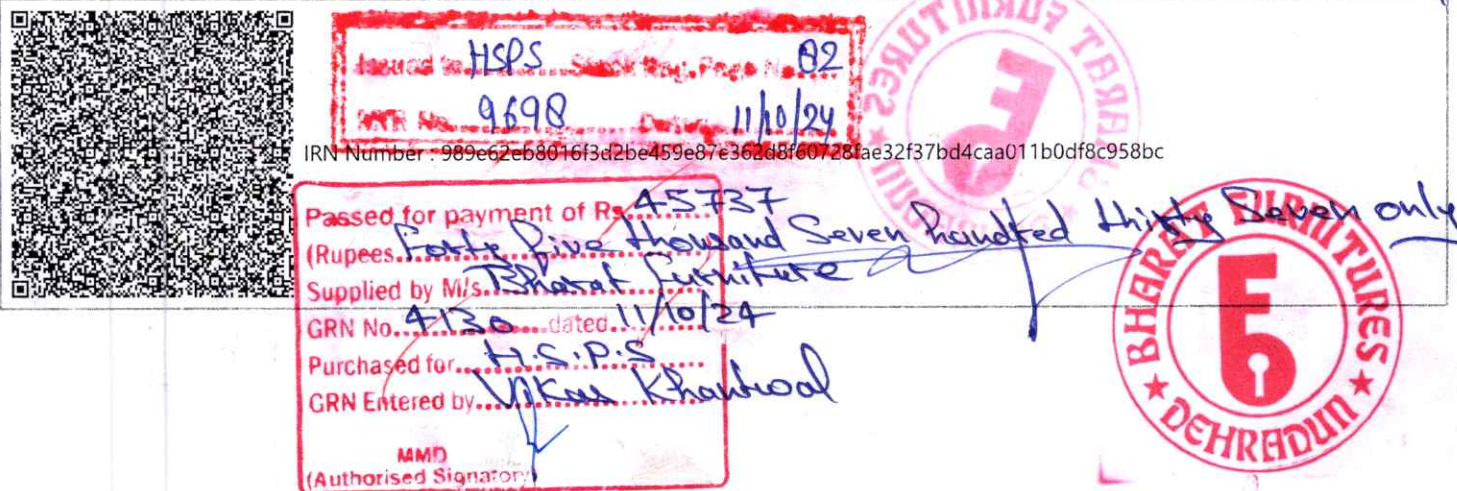 Issued to HSPS Stock Reg. Page No. 02
No. 9698 Date 11/10/24
IRN Number : 989e62eb8016f3d2be459e87e362d8f60728fae32f37bd4caa011b0df8c958bc
Passed for payment of Rs. 45737
(Rupees Forty Five thousand Seven hundred thirty Seven only
Supplied by M/s. Bharat Furniture
GRN No. 4130 dated 11/10/24
Purchased for H.S.P.S
GRN Entered by Vikas Khantwal
MMD
(Authorised Signatory)
BHARAT FURNITURES
DEHRADUN
BHARAT FURNITURES